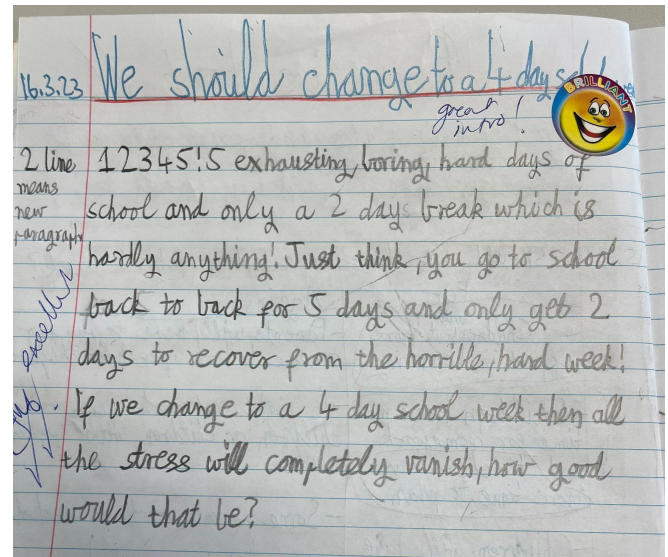 16.3.23 We should change to a 4 day
BRILLIANT
great
intro!
2 line
means
new
paragraph
12345! 5 exhausting, boring, hard days of
school and only a 2 days break which is
hardly anything! Just think, you go to school
back to back for 5 days and only get 2
days to recover from the horrible, hard week!
If we change to a 4 day school week then all
the stress will completely vanish, how good
would that be?